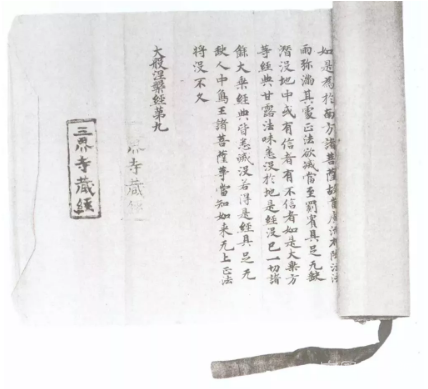 如是為於南方諸菩薩故當廣流布降注法
雨弥滿其處正法欲滅當至罽賓具足无缺
潛沒地中或有信者有不信者如是大乘方
等經典甘露法味悉沒於地是經沒已一切諸
餘大乘經典皆悉滅沒若得是經具足无
缺人中象王諸菩薩等當知如來无上正法
將沒不久
大般涅槃經第九
界寺藏經
三界寺藏經